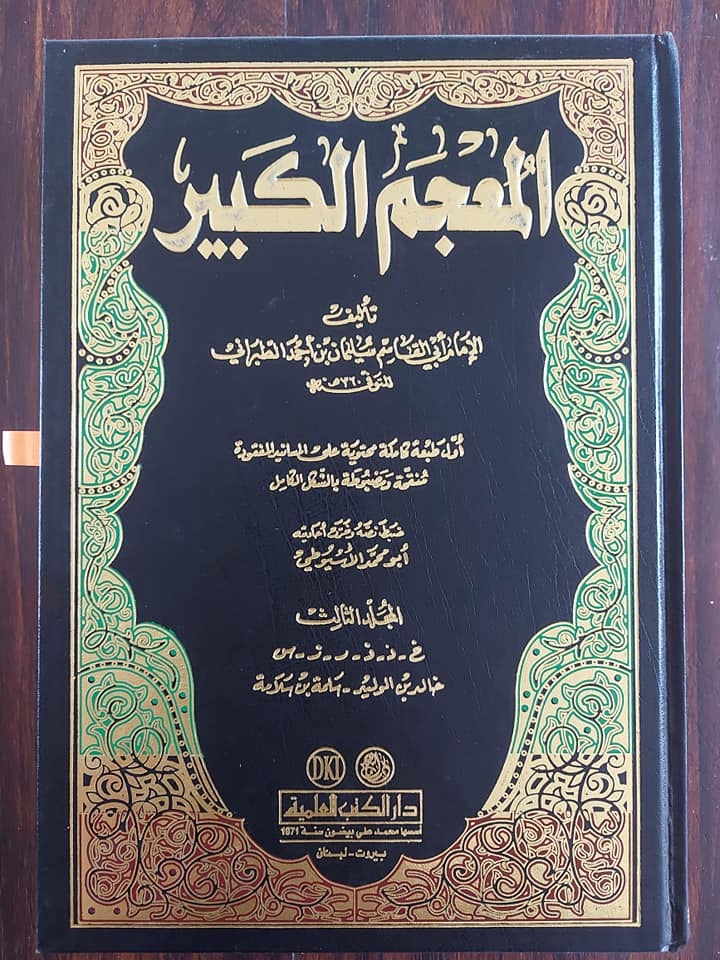 المعجم الكبير
تأليف
الإمام أبي القاسم سليمان بن أحمد الطبراني
المتوفى ٣٦٠ هـ سنة
أول طبعة كاملة محتوية على المسانيد المفقودة
منقحة ومضبوطة بالشكل الكامل
ضبط نصه وخرج أحاديثه
أبو محمد الأسيوطي
المجلد الثالث
خ - د - ذ - ر - ز - س
خالد بن الوليد - سلمة بن سلامة
DKI
دار الكتب العلمية
أسسها محمد علي بيضون سنة 1971
بيروت - لبنان